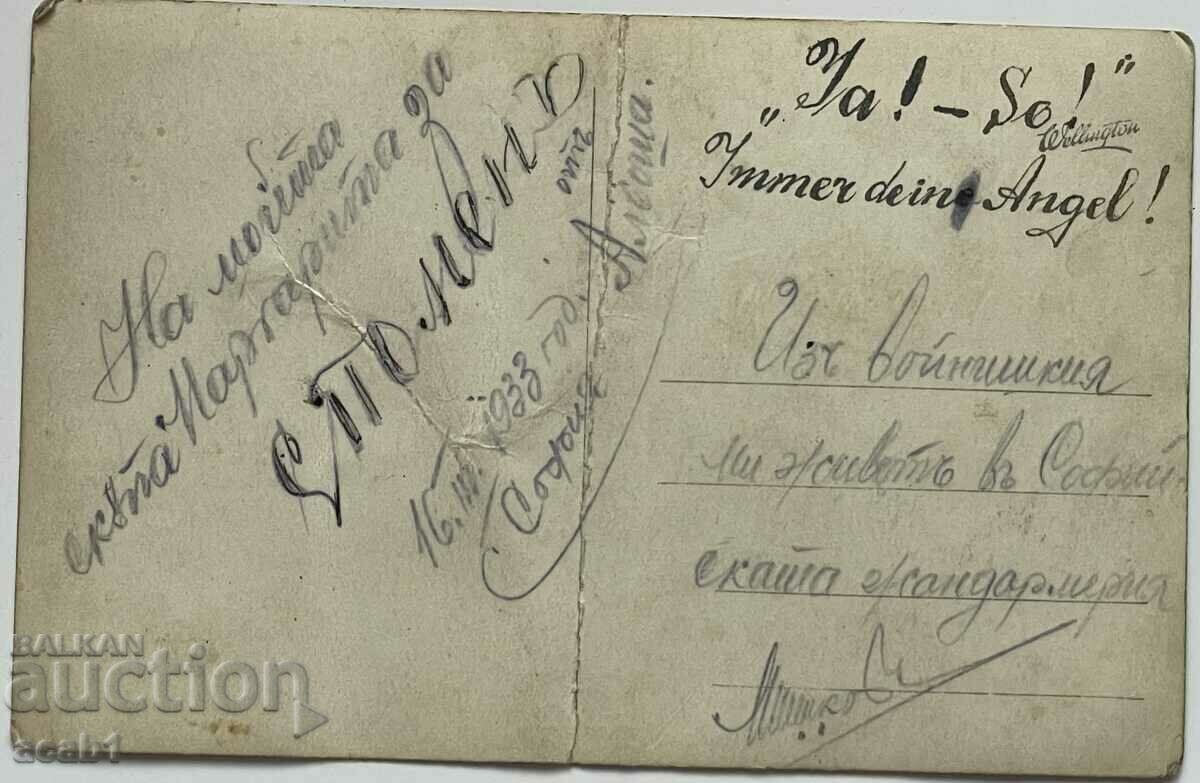 На мойта
скѫпа Маргарита за
СПОМЕНЪ
отъ
Алёша.
16.III.1933 год.
София
„Ja! – So!"
Wellington
Immer deine Angel!
Изъ войнишкия
ми животъ въ Софий-
ската жандармерия
BALKAN
auction
acab1